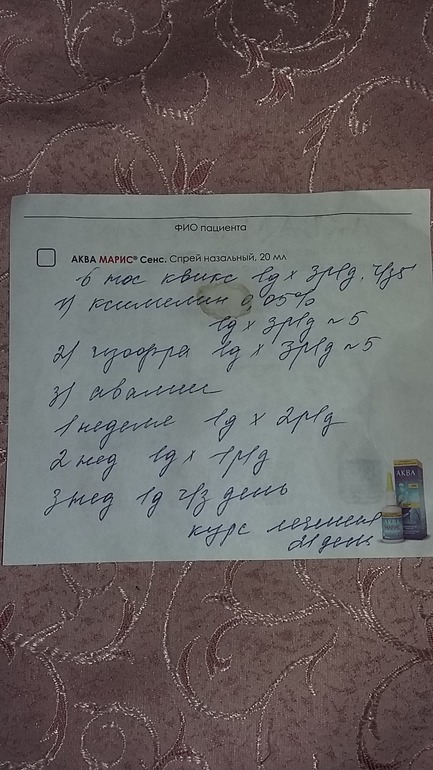 ФИО пациента
АКВА МАРИС® Сенс. Спрей назальный, 20 мл
в нос квикс 1д х 3р/д. ч/з 5
1) ксимелин 0,05%
1д х 3р/д ~ 5
2) изофра 1д х 3р/д ~ 5
3) авамис
1 неделя 1д х 2р/д
2 нед 1д х 1р/д
3 нед 1д ч/з день
курс лечения
21 день
АКВА
АКВА
МАРИС